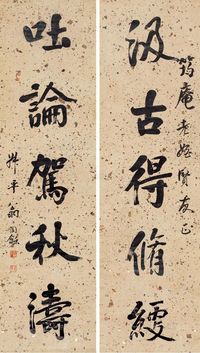 筠庵老姪賢友正
汲古得脩綆
吐論駕秋濤
叔平翁同龢